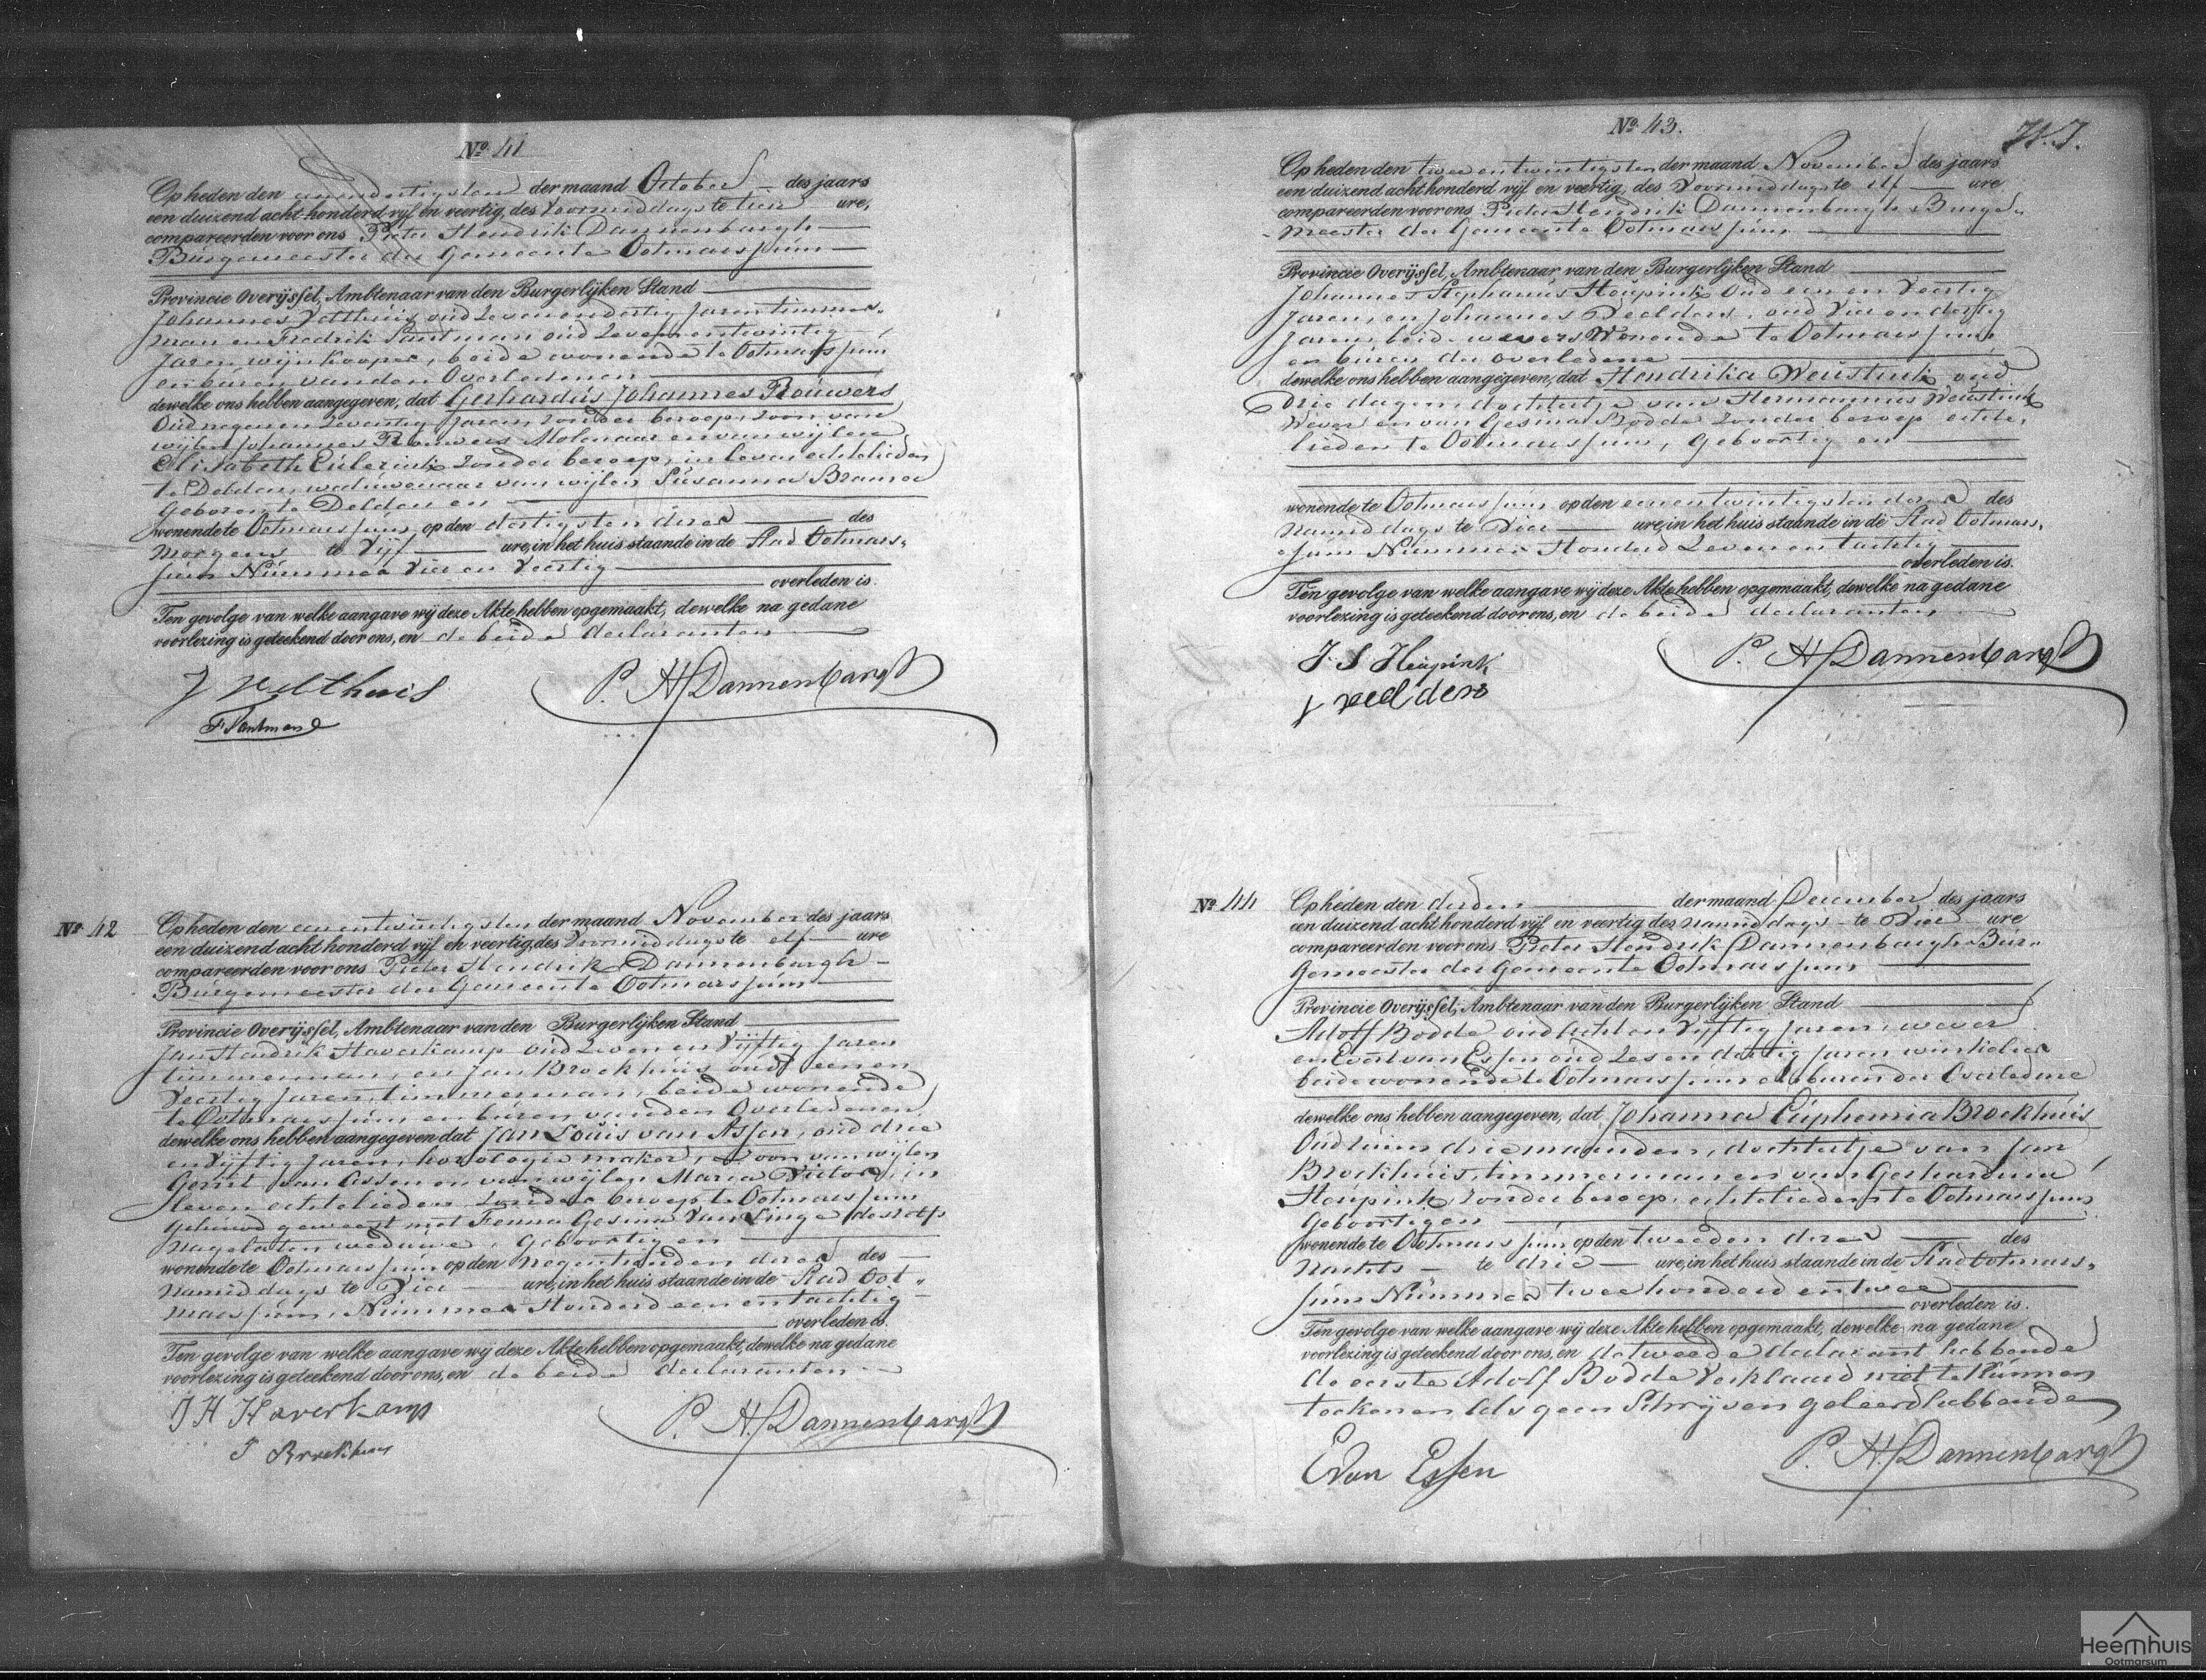 No. 41
Op heden den eenendertigsten der maand October des jaars
een duizend acht honderd vijf en veertig, des Voormiddags te tien ure,
compareerden voor ons Pieter Hendrik Dannenbargh
Burgemeester der Gemeente Ootmarssum
Provincie Overijssel, Ambtenaar van den Burgerlijken Stand
Johannes Velthuis oud zevenendertig Jaren timmer-
man en Fredrik Santman oud zevenentwintig
Jaren wijnkooper, beide wonende te Ootmarssum
en buren van den Overledenen
dewelke ons hebben aangegeven, dat Gerhardus Johannes Brouwers
Oud negenenzeventig Jaren zonder beroep, zoon van
wijlen Johannes Brouwers Molenaar en van wijlen
Elisabeth zonder beroep, in leven echtelieden
te Delden, weduwenaar van wijlen Susanna Bramer
Geboren te Delden en
wonende te Ootmarssum op den dertigsten dezer des
morgens te Vijf ure, in het huis staande in de Stad Ootmars-
sum Nummer Vier en Veertig
overleden is.
Ten gevolge van welke aangave wij deze Akte hebben opgemaakt, dewelke na gedane
voorlezing is geteekend door ons, en de beide declaranten
J Velthuis
P. H. Dannenbargh
F Santman
No. 42
Op heden den eenentwintigsten der maand November des jaars
een duizend acht honderd vijf en veertig, des Voormiddags te elf ure
compareerden voor ons Pieter Hendrik Dannenbargh
Burgemeester der Gemeente Ootmarssum
Provincie Overijssel, Ambtenaar van den Burgerlijken Stand
Jan Hendrik Haverkamp oud zeven en Vijftig Jaren
timmerman, en Jan Brockhuis oud eenen
Veertig Jaren, timmerman, beide wonende
te Ootmarssum en buren van den Overledenen
dewelke ons hebben aangegeven dat Jan Louis van Assen, oud drie
en Vijftig Jaren, horologie maker, zoon van wijlen
Gerrit van Assen en van wijlen Maria Victor, in
leven echtelieden zonder beroep te Ootmarssum
Gehuwd geweest met Fenna Gesina van Linge deszelfs
nagelaten weduwe, Geboortig en
wonende te Ootmarssum op den negentienden dezer des
namiddags te Vier ure, in het huis staande in de Stad Oot-
marssum, Nummer Honderd een en tachtig
overleden is.
Ten gevolge van welke aangave wij deze Akte hebben opgemaakt, dewelke na gedane
voorlezing is geteekend door ons, en de beide declaranten
J H Haverkamp
P. H. Dannenbargh
J Brockhuis
No. 43.
Op heden den twee entwintigsten der maand November des jaars
een duizend acht honderd vijf en veertig, des Voormiddags te elf ure
compareerden voor ons Pieter Hendrik Dannenbargh Burge-
meester der Gemeente Ootmarssum,
Provincie Overijssel, Ambtenaar van den Burgerlijken Stand
Johannes Stephanus Heupink Oud een en Veertig
Jaren, en Johannes Veelders, oud Vier en dertig
Jaren, beide wevers Wonende te Ootmarssum
en buren der overledene
dewelke ons hebben aangegeven, dat Hendrika Weustink oud
Drie dagen, dochtertje van Hermannus Weustink
Wever en van Gesina Bodde zonder beroep echte-
lieden te Ootmarssum, Geboortig en
wonende te Ootmarssum op den eenentwintigsten dezer des
namiddags te Vier ure, in het huis staande in de Stad Ootmars-
sum Nummer Honderd Zevenentachtig
overleden is.
Ten gevolge van welke aangave wij deze Akte hebben opgemaakt, dewelke na gedane
voorlezing is geteekend door ons, en de beide declaranten
J. S. Heupink
P. H. Dannenbargh
J veelders
No. 44
Op heden den derden der maand December des jaars
een duizend acht honderd vijf en veertig des namiddags te Vier ure
compareerden voor ons Pieter Hendrik Dannenbargh Bur-
gemeester der Gemeente Ootmarssum
Provincie Overijssel, Ambtenaar van den Burgerlijken Stand
Adolf Bodde oud Acht en Vijftig Jaren, wever
en Evert van Essen oud Zes en dertig Jaren winkelier
beide wonende te Ootmarssum als buren der Overledene
dewelke ons hebben aangegeven, dat Johanna Euphemia Brockhuis
Oud ruim drie maanden, dochtertje van Jan
Brockhuis, timmerman en van Gerhardina
Heupink, zonder beroep, echtelieden te Ootmarssum
Geboortig en
wonende te Ootmarssum op den tweeden dezer des
Nachts te drie ure, in het huis staande in de Stad Ootmars-
sum Nummer twee honderd en twee
overleden is.
Ten gevolge van welke aangave wij deze Akte hebben opgemaakt, dewelke na gedane
voorlezing is geteekend door ons, en de tweede declarant hebbende
de eerste Adolf Bodde Verklaard niet te kunnen
teekenen als geen Schrijven geleerd hebbende
E Van Essen
P. H. Dannenbargh
Heemhuis
Ootmarsum